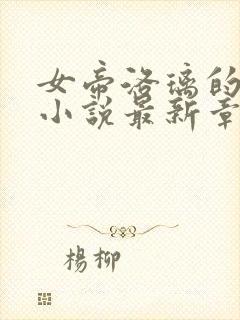 女帝洛璃的
小說最新章
楊柳